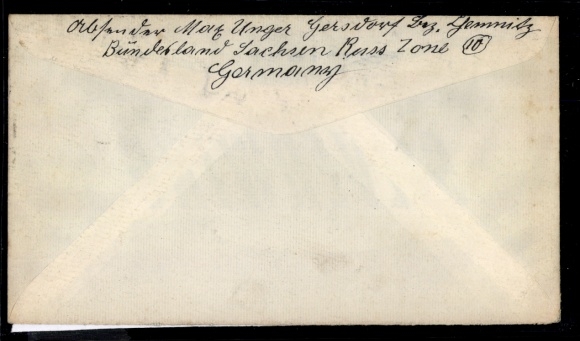 Absender Max Unger Gersdorf Bez. Chemnitz
Bünderland Sachsen Russ Zone (10)
Germany